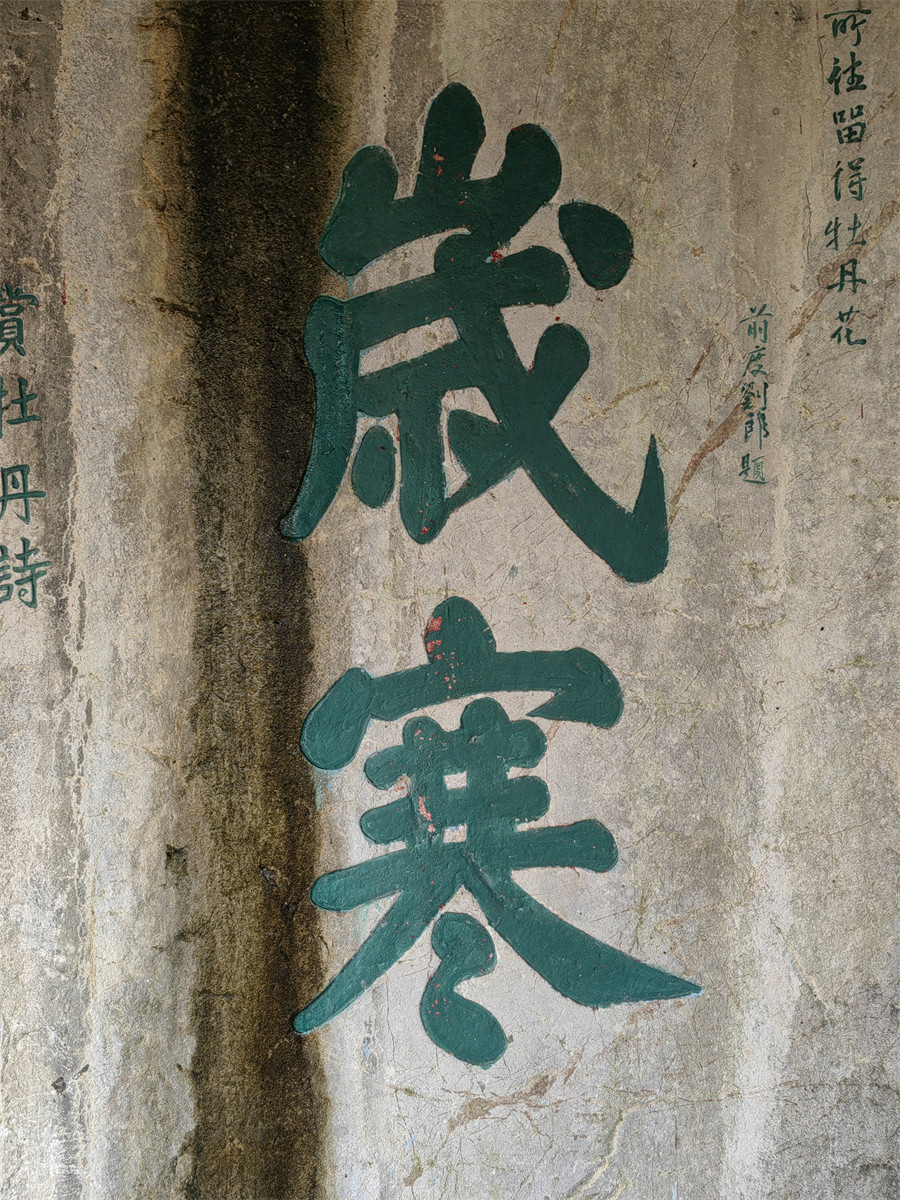 所留得牡丹花
前度劉郎題
歲寒
賞牡丹詩